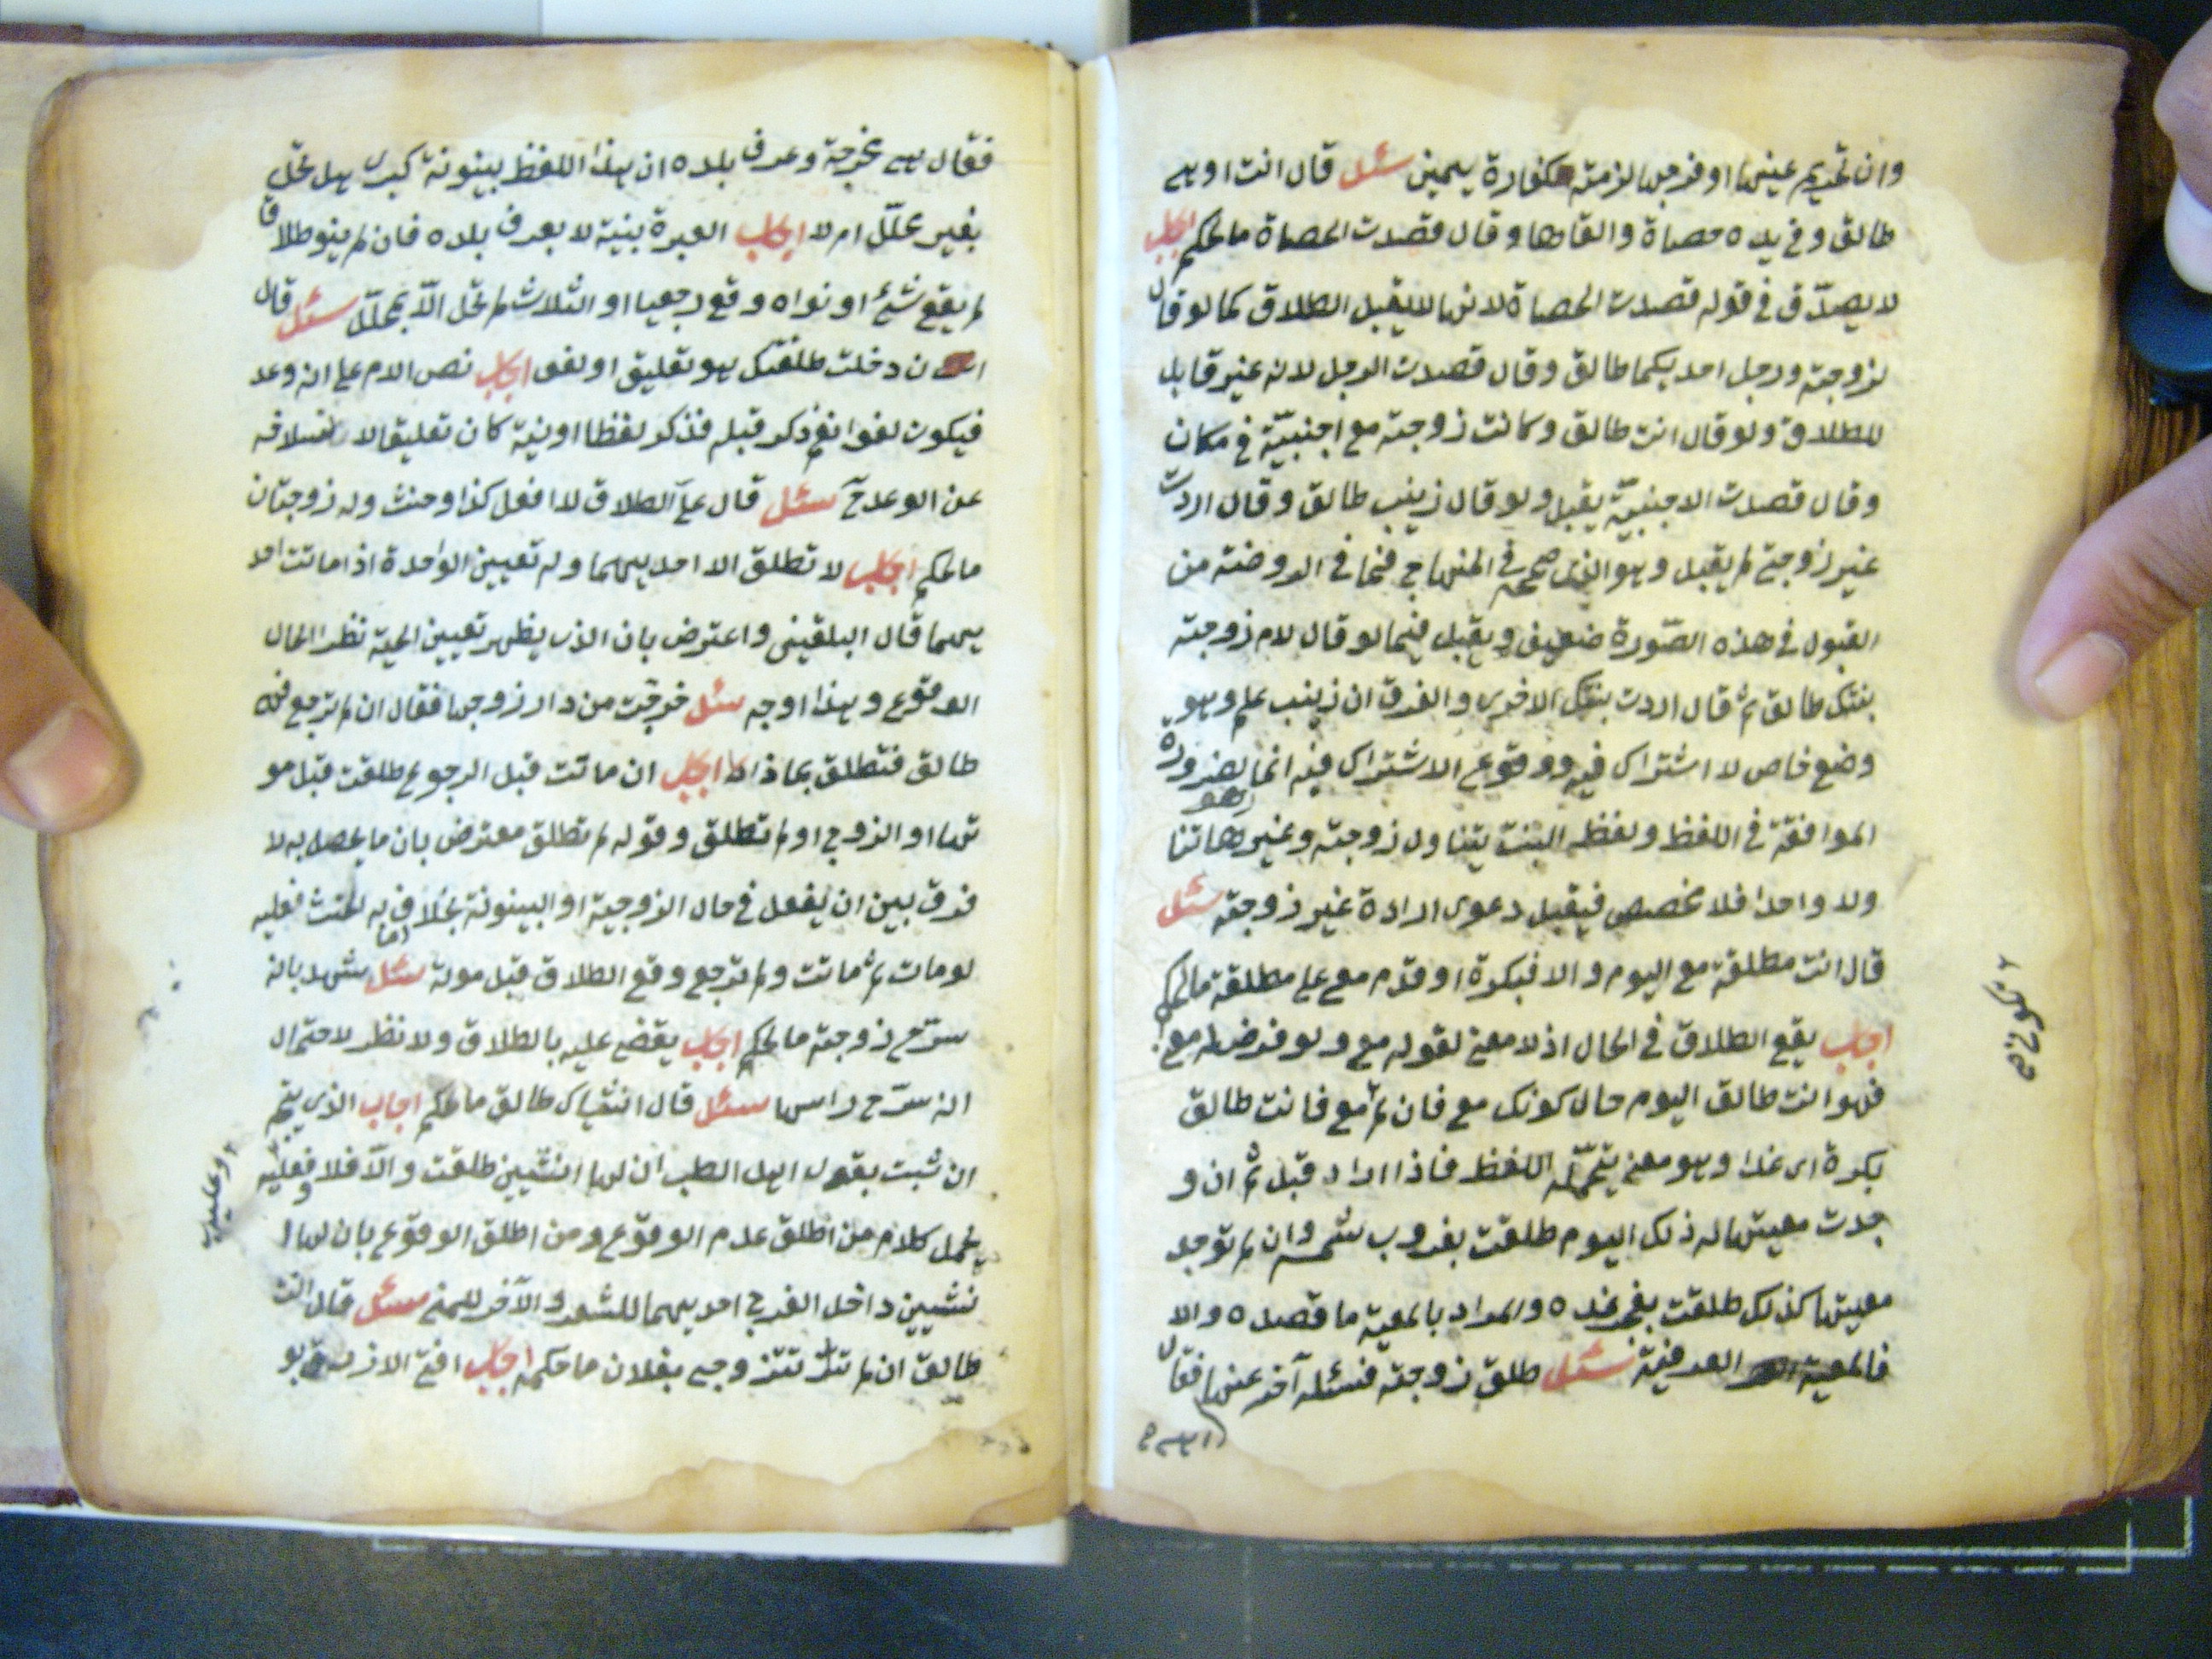 وان تحريم عينها او فرجها لزمته كفارة يمين سئل قال انت او هي
طالق وفي يده حصاة والقاها وقال قصدت الحصاة ما الحكم اجاب
لا يصدّق في قوله قصدت الحصاة لانها لا يقبل الطلاق كما لو قال
لزوجته ورجل احديكما طالق وقال قصدت الرجل لانه غير قابل
للطلاق ولو قال انت طالق وكانت زوجته مع اجنبيّة في مكان
وقال قصدت الاجنبيّة يقبل ولو قال زينب طالق وقال اردت
غير زوجتي لم يقبل وهو الذى صححه في المنهاج فما في الروضة من
القبول في هذه الصّورة ضعيف ويقبل فيما لو قال لام زوجته
بنتك طالق ثم قال اردت بنتك الاخرى والفرق ان زينب علم وهو
وضع خاص لا اشتراك فيه ووقوع الاشتراك فيه انما لضرورة
الموافقة في اللفظ ولفظه البنت يتناول زوجته وغيرها تنا
ولا واحدا فلا مخصص فيقبل دعوى ارادة غير زوجته سئل
قال انت مطلقة مع اليوم والا فبكرة او قدم مع على مطلقة ما الحكم
اجاب يقع الطلاق في الحال اذ لا معنى لقوله مع ولو فرض له مع
فهو انت طالق اليوم حال كونك مع فان لم مع فانت طالق
بكرة اى غدا وهو معنى يتحمّله اللفظ فاذا اراد قبل ثم ان و
جدت معيتها له ذلك اليوم طلقت بغروب شمسه وان لم توجد
معيتها كذلك طلقت بفجر غده والمراد بالمعية ما قصده والا
فالمعية العرفية سئل طلق زوجته فسئله آخر عنها فقال
فقال هي مخرجة وعرف بلده ان هذا اللفظ بينونة كبرى هل تحل
بغير محلّل ام لا اجاب العبرة بنيته لا بعرف بلده فان لم ينو طلاقا
لم يقع شئ او نواه وقع رجعيا او الثلاث لم تحل الّا بمحلّل سئل قال
ان دخلت طلقتك هو تعليق او لغو اجاب نص الام على انه وعد
فيكون لغوا نعم ذكر قبله فذكر لفظا او نية كان تعليقا لا نسلاخه
عن الوعد ح سئل قال عليّ الطلاق لا افعل كذا وحنث وله زوجتان
ما الحكم اجاب لا تطلق الا احديهما وله تعيين الواحدة اذا ماتت احد
يهما قال البلقيني واعترض بان الذى يظهر تعيين الحية نظرا لحال
الوقوع وهذا اوجه سئل خرجت من دار زوجها فقال ان لم ترجع فهي
طالق فتطلق بماذا اجاب ان ماتت قبل الرجوع طلقت قبل مو
تها او الزوج او لم تطلق وقوله لم تطلق معترض بان ما يحصل به لا
فرق بين ان يفعل في حال الزوجية او البينونة بخلاف به الحنث فعليه
لو مات ثم ماتت ولم ترجع وقع الطلاق قبل موته سئل شهد بانه
سرّح زوجته ما الحكم اجاب يقضى عليه بالطلاق ولا نظر لاحتمال
انه سرّح راسها سئل قال انثياك طالق ما الحكم اجاب الذى يتجه
ان ثبت بقول اهل الطب ان لها انثيين طلقت والّا فلا وعليه
يحمل كلام من اطلق عدم الوقوع ومن اطلق الوقوع بان لها ا
نثيين داخل الفرج احديهما للشعر والآخر للمني سئل قال انت
طالق ان لم تتزوجي بفلان ما حكمه اجاب افتى الازرق بو